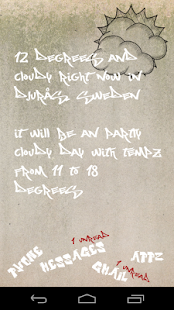 12 Degrees and
cloudy right now in
Djurås Sweden
it will be an partly
cloudy day with tempz
from 11 to 18
Degrees
1 unread
Messages
Appz
1 unread
Gmail